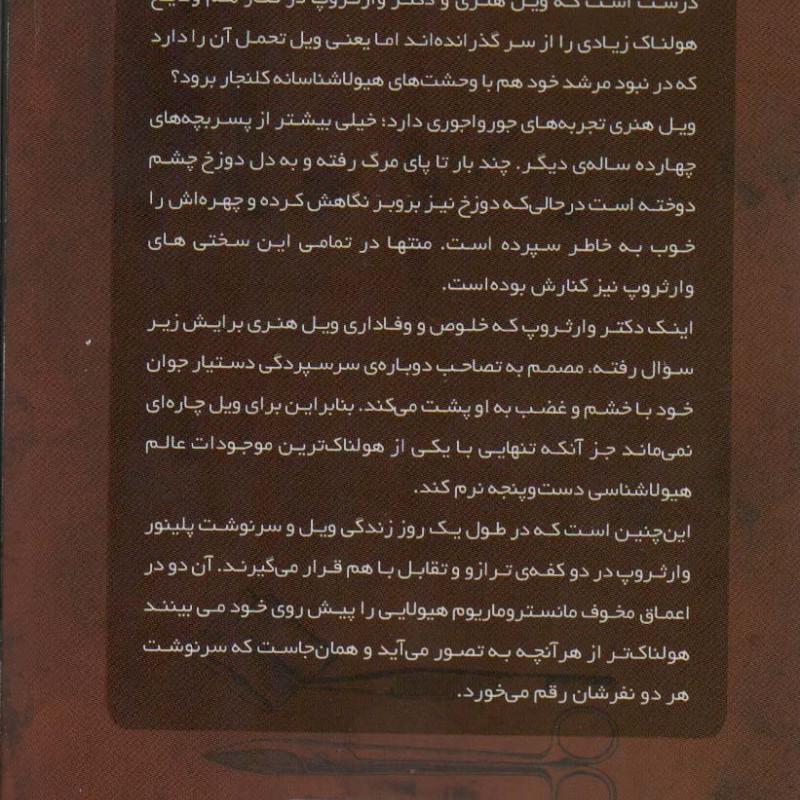 درست است که ویل هنری و دکتر وارثروپ در کنار هم وقایع
هولناک زیادی را از سر گذرانده‌اند اما یعنی ویل تحمل آن را دارد
که در نبود مرشد خود هم با وحشت‌های هیولاشناسانه کلنجار برود؟
ویل هنری تجربه‌های جورواجوری دارد؛ خیلی بیشتر از پسربچه‌های
چهارده ساله‌ی دیگر. چند بار تا پای مرگ رفته و به دل دوزخ چشم
دوخته است درحالی‌که دوزخ نیز بِرّوبِر نگاهش کرده و چهره‌اش را
خوب به خاطر سپرده است. منتها در تمامی این سختی های
وارثروپ نیز کنارش بوده‌است.
اینک دکتر وارثروپ که خلوص و وفاداری ویل هنری برایش زیر
سؤال رفته، مصمم به تصاحبِ دوباره‌ی سرسپردگی دستیار جوان
خود با خشم و غضب به او پشت می‌کند. بنابراین برای ویل چاره‌ای
نمی‌ماند جز آنکه تنهایی با یکی از هولناک‌ترین موجودات عالم
هیولاشناسی دست‌وپنجه نرم کند.
این‌چنین است که در طول یک روز زندگی ویل و سرنوشت پلینور
وارثروپ در دو کفه‌ی ترازو و تقابل با هم قرار می‌گیرند. آن دو در
اعماق مخوف مانستروماریوم هیولایی را پیش روی خود می بینند
هولناک‌تر از هرآنچه به تصور می‌آید و همان‌جاست که سرنوشت
هر دو نفرشان رقم می‌خورد.